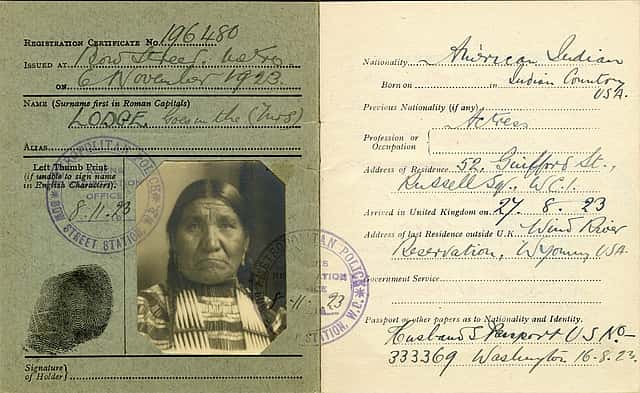 REGISTRATION CERTIFICATE No. 196480
ISSUED AT Bow Street, Metro.
ON 6 November 1923.
NAME (Surname first in Roman Capitals)
LODGE, Goes in the (Mrs)
ALIAS
Left Thumb Print
(if unable to sign name
in English Characters).
METROPOLITAN POLICE
OFFICE
8·11·23
BOW STREET STATION, W.C.
METROPOLITAN POLICE
8-11-23
STATION, W.C.
Signature
of Holder
Nationality American Indian
Born on in Indian Country
USA.
Previous Nationality (if any)
Profession or
Occupation
Actress
Address of Residence 52, Guilford St.,
Russell Sq., W.C.1.
Arrived in United Kingdom on 27. 8. 23
Address of last Residence outside U.K. Wind River
Reservation, Wyoming USA.
Government Service
Passport or other papers as to Nationality and Identity.
Husband's Passport U S No-
333369 Washington 16-8-23.